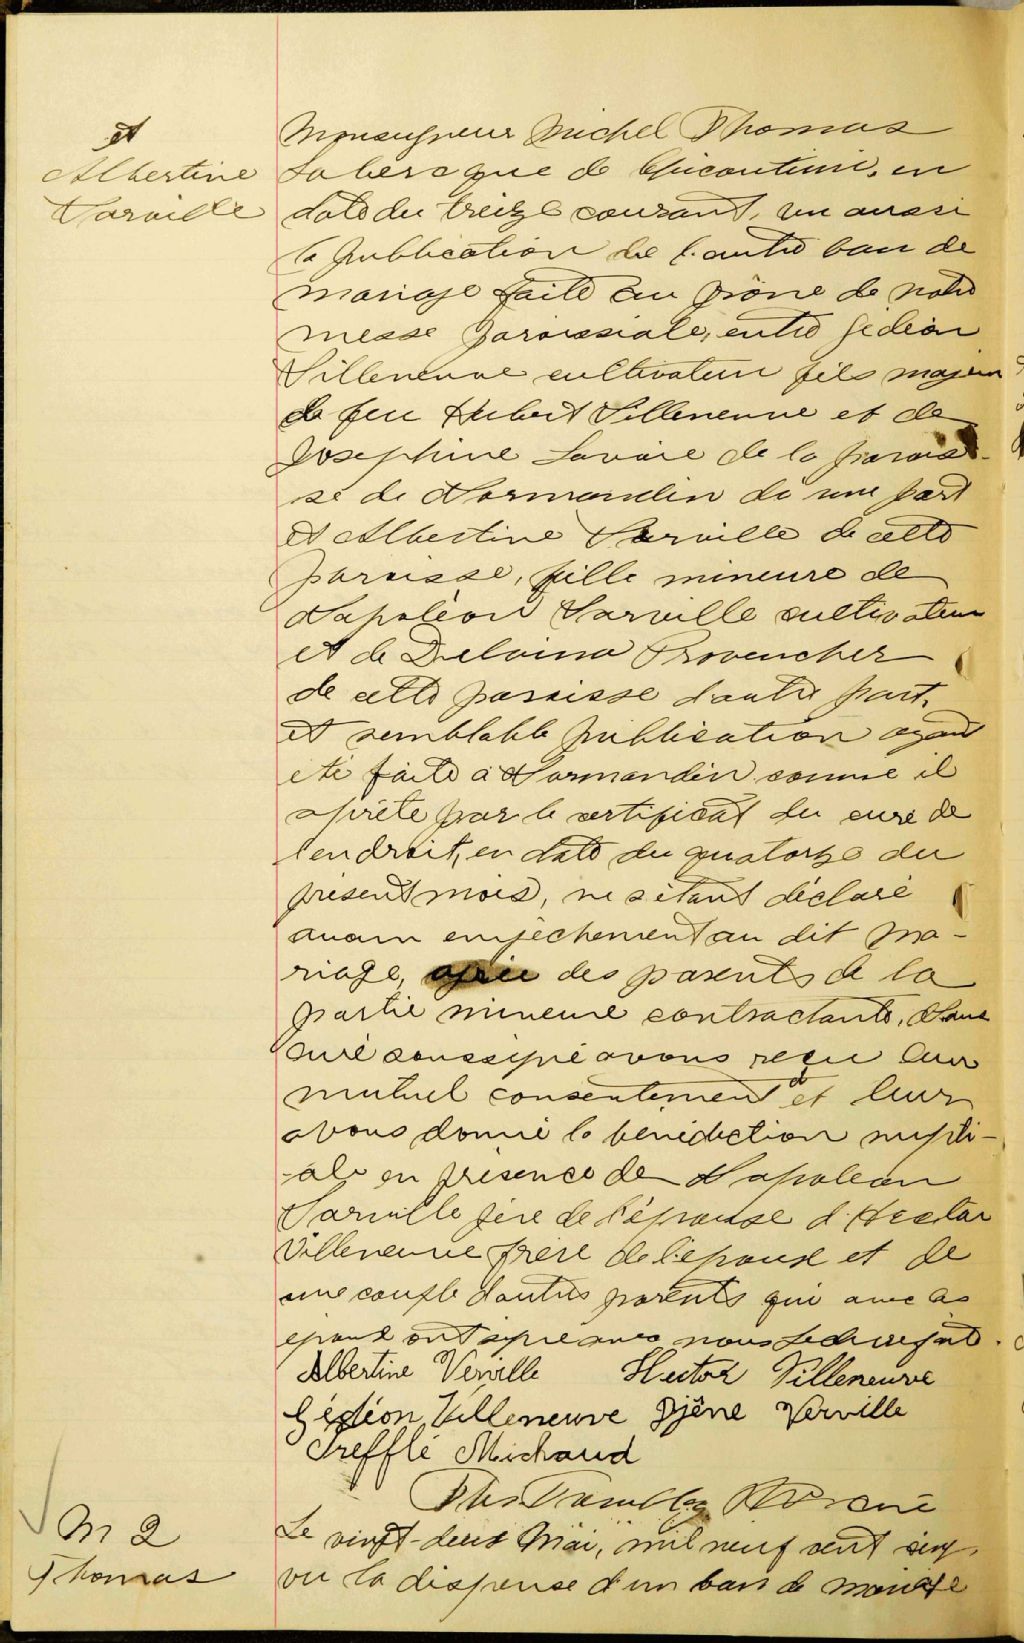 et
Albertine
Varville
Monseigneur Michel Thomas
Labrecque de Chicoutimi, en
date du treize courant, vu aussi
la publication de l'autre ban de
mariage faite au prône de notre
messe paroissiale, entre Gédéon
Villeneuve cultivateur fils majeur
de feu Hubert Villeneuve et de
Josephine Lavoie de la parois-
se de Normandin de une part
et Albertine Varville de cette
paroisse, fille mineure de
Napoléon Varville cultivateur
et de Delvina Provencher
de cette paroisse d'autre part,
et semblable publication ayant
été faite à Normandin comme il
apréte par le certificat du curé de
l'endroit, en date du quatorze du
présent mois, ne s'étant déclaré
aucun empêchement au dit ma-
riage, des parents de la
partie mineure contractante, Nous
curé soussigné avons reçu leur
mutuel consentement et leur
avons donné la bénédiction nupti-
-ale en présence de Napoleon
Varville père de l'épouse d. Hector
Villeneuve frère de l'époux et de
une couple d'autres parents qui avec les
époux ont signé avec nous Lecture faite.
Albertine Verville Hector Villeneuve
Gédéon Villeneuve Djéne Verville
Trefflé Michaud
Ths Tremblay Ptre curé
M 2
Thomas
Le vingt-deux Mai, mil neuf cent cinq,
vu la dispense d'un ban de mariage